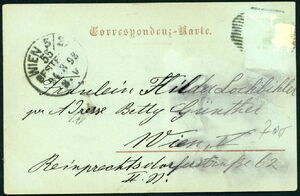 Correspondenz-Karte.
WIEN
24.3.98
Fräulein Hilda
per Adresse Betty Günther
Wien, V
700
Reinprechtsdorferstraße 62